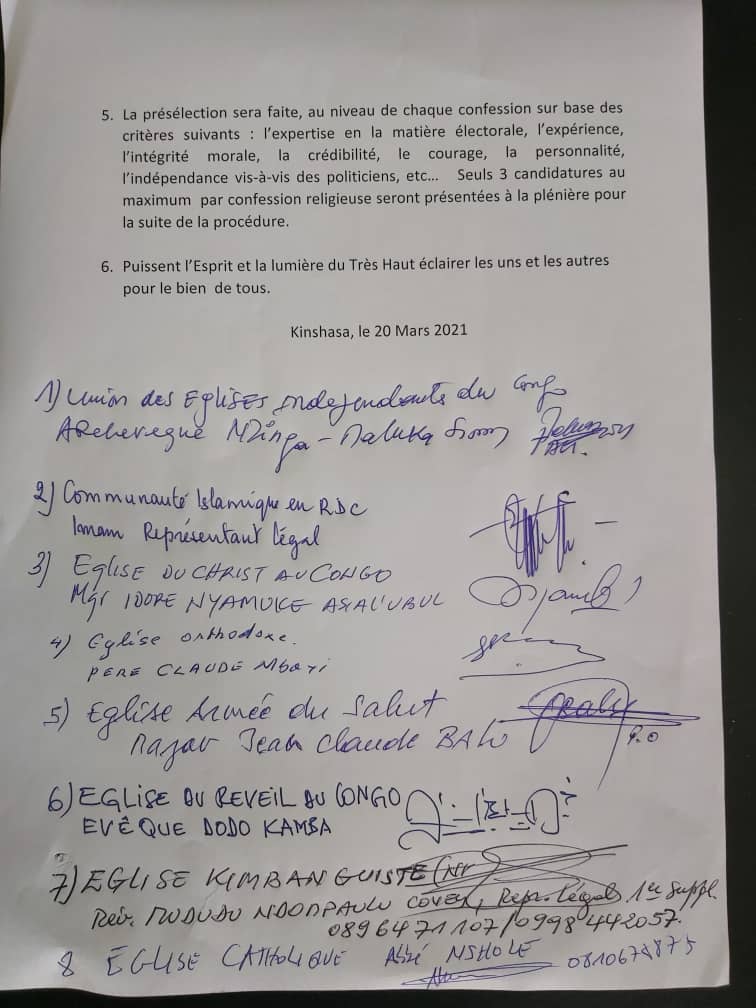 5. La présélection sera faite, au niveau de chaque confession sur base des
critères suivants : l'expertise en la matière électorale, l'expérience,
l'intégrité morale, la crédibilité, le courage, la personnalité,
l'indépendance vis-à-vis des politiciens, etc... Seuls 3 candidatures au
maximum par confession religieuse seront présentées à la plénière pour
la suite de la procédure.
6. Puissent l'Esprit et la lumière du Très Haut éclairer les uns et les autres
pour le bien de tous.
Kinshasa, le 20 Mars 2021
1) Union des EgliSES Independants du Congo
ARchevêque Nzinga - Maluka Simon
2) Communauté Islamique en RDC
Imam Représentant légal
3) EGLISE DU CHRIST AU CONGO
Mgr IDORE NYAMUKE ASIAL'UBUL
4) Eglise orthodoxe.
PERE CLAUDE Mbayi
5) Eglise Armée du Salut
Major Jean Claude BALU
P.O
6) EGLISE DU REVEIL DU CONGO
EVÊQUE DODO KAMBA
7) EGLISE KIMBANGUISTE
Rév. MUDUDU NDOMPAULU Repr. légal 1er Suppl.
0896471107/0998442057.
8 EGLISE CATHOLIQUE Abbé NSHOLE